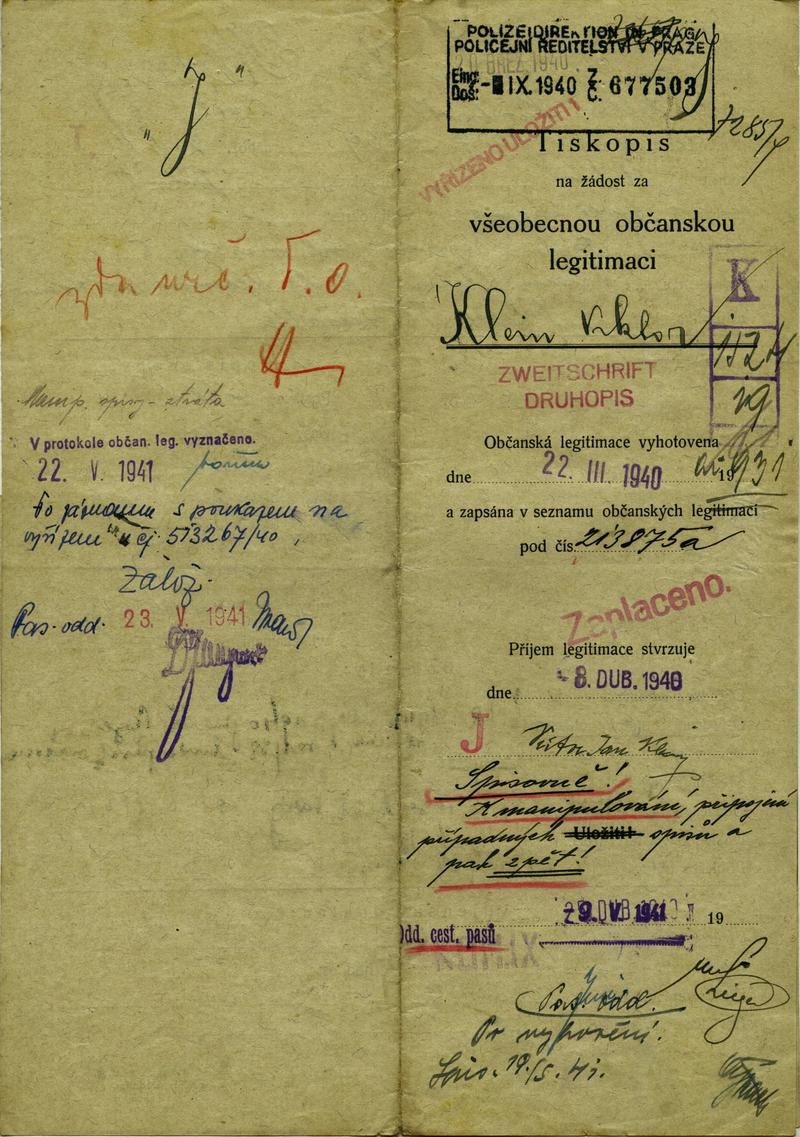 „J“
T. o.
V protokole občan. leg. vyznačeno.
22. V. 1941
s poukazem na
čj 513267/40,
Založ.
Pas. odd. 23. V. 1941
POLIZEIDIREKTION IN PRAG
POLICEJNÍ ŘEDITELSTVÍ V PRAZE
Eing.
Doš:
IX. 1940 Z. Č. 677503
VYŘÍZENO ULOŽITI
Tiskopis
na žádost za
všeobecnou občanskou
legitimaci
K
Klein Viktor
ZWEITSCHRIFT
DRUHOPIS
Občanská legitimace vyhotovena
dne 22. III. 1940 19
931
a zapsána v seznamu občanských legitimací
pod čís. 213875a
Zaplaceno.
Příjem legitimace stvrzuje
dne 8. DUB. 1940
J
Viktor Jan Klein
Spisovně!
K manipulování, připojení
případných Uložiti! spisů a
pak zpět!
V. 1941 19
Odd. cest. pasů
Pas. odd.
Po vyhovění.
19./5. 41.